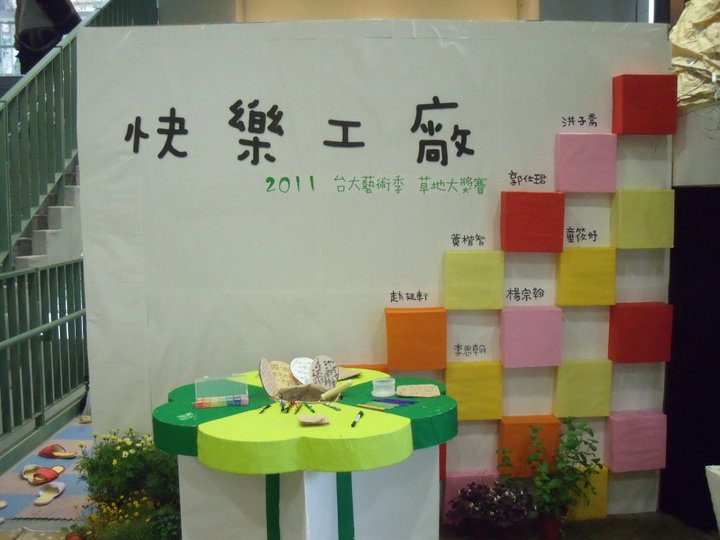 快樂工廠
2011 台大藝術季 草地大獎賽
洪子喬
郭仕珺
黃楷智
童筱妤
趙砡軒
楊宗翰
李思翰